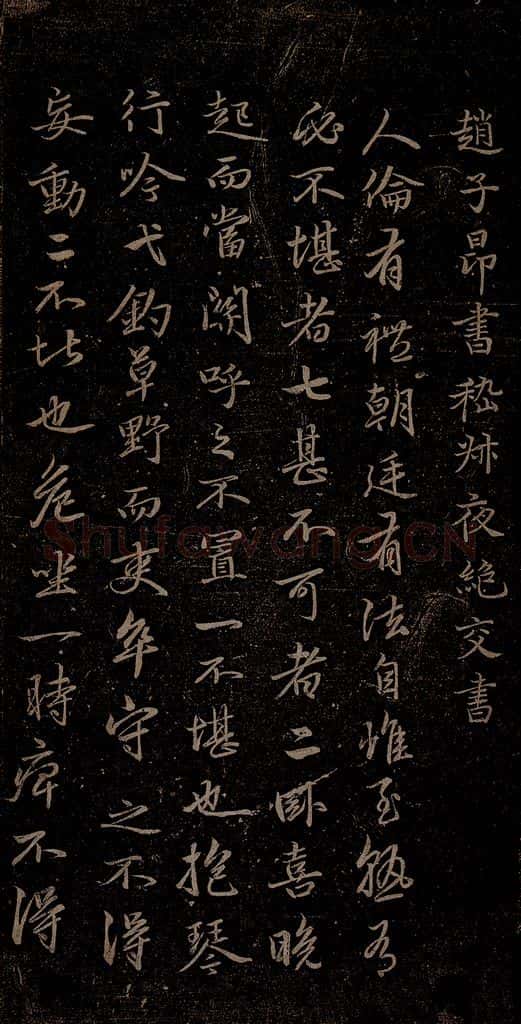 趙子昂書嵇叔夜絕交書
人倫有禮朝廷有法自惟至熟有
必不堪者七甚不可者二卧喜晚
起而當關呼之不置一不堪也抱琴
行吟弋釣草野而吏卒守之不得
妄動二不堪也危坐一時痺不得
Shufawang.CN